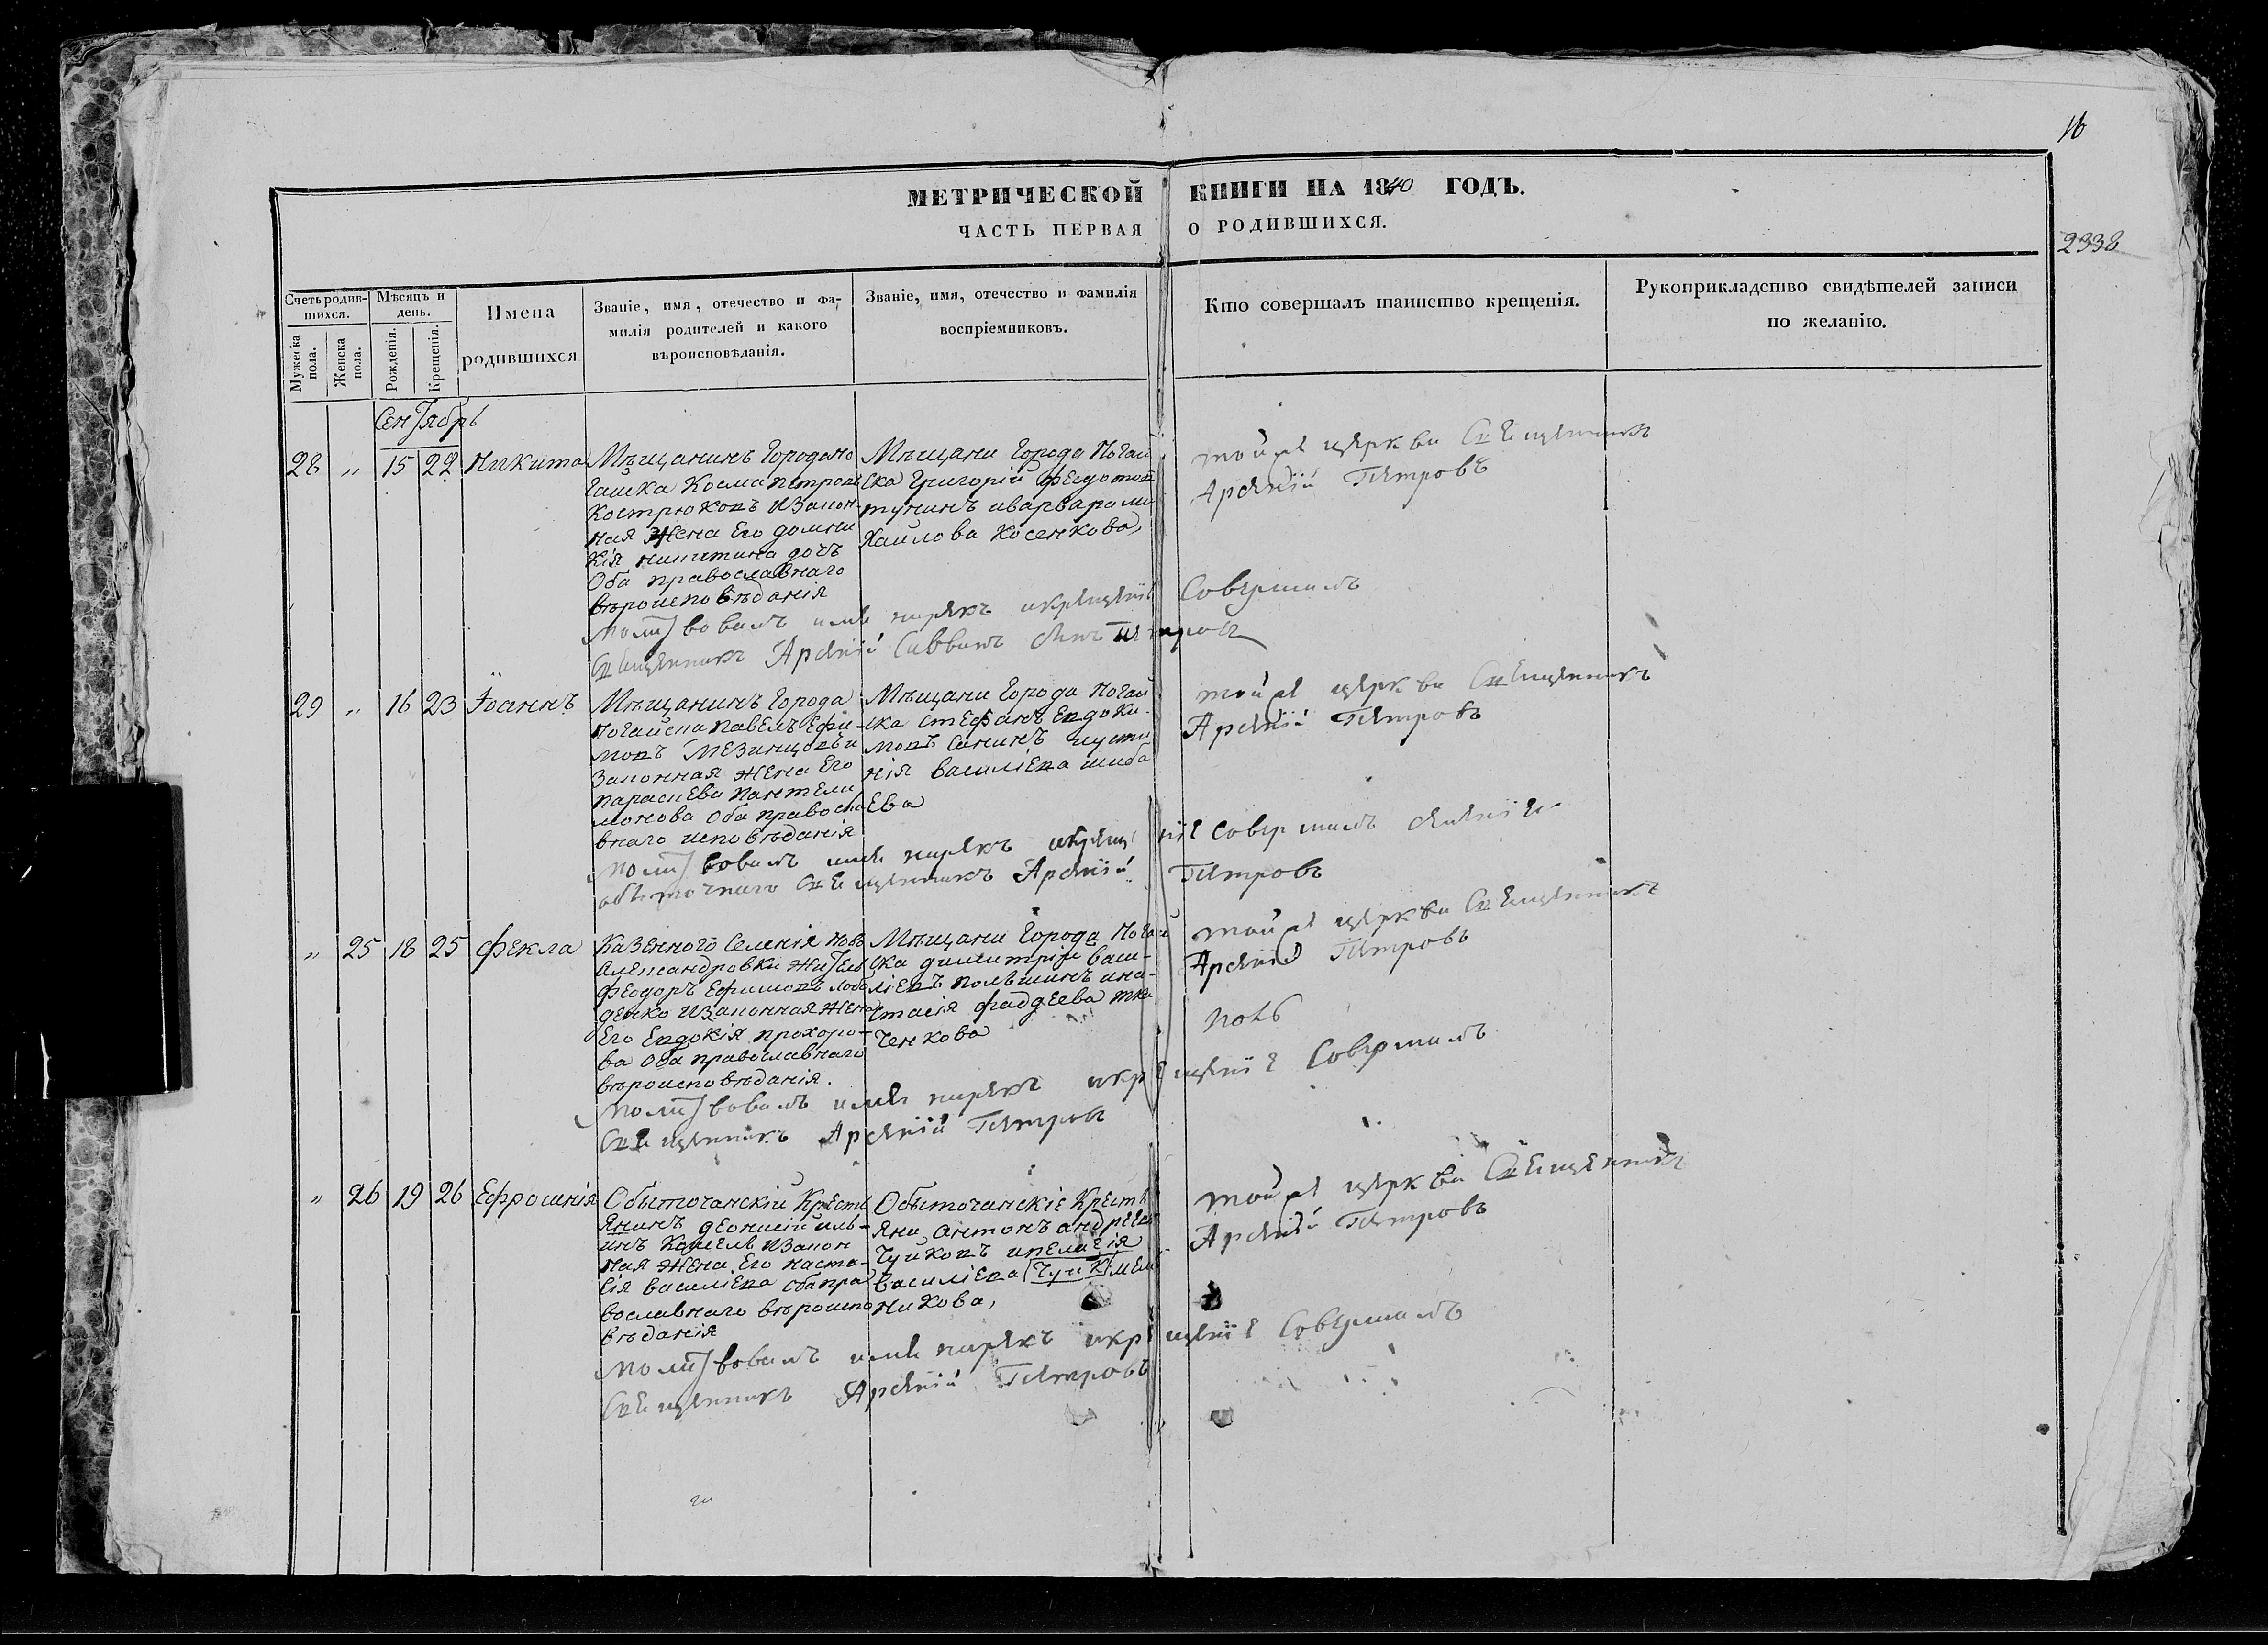 16
МЕТРИЧЕСКОЙ КНИГИ НА 1840 ГОДЪ.
ЧАСТЬ ПЕРВАЯ О РОДИВШИХСЯ.
2338
Счетъ родив-
шихся.
Мужеска пола.
Женска пола.
Мѣсяцъ и
день.
Рожденія.
Крещенія.
Имена
родившихся
Званіе, имя, отечество и фа-
милія родителей и какого
вѣроисповѣданія.
Званіе, имя, отечество и фамилія
воспріемниковъ.
Кто совершалъ таинство крещенія.
Рукоприкладство свидѣтелей записи
по желанію.
Сентябрь
28 „ 15 22 Никита
Мѣщанинъ Города но
гайска Косма петровъ
Кострюковъ изакон-
ная жена Его домни
кія никитина дочь
Оба православнаго
вѣроисповѣданія
Мѣщани Города Ногай
ска Григорій Федотов
тунинъ иварвара ми
хайлова Косенкова,
тойже церкви Священникъ
Арсеній Петровъ
молитвовалъ имя нарекъ икрещеніе Совершалъ
Священникъ Арсеній Саввинъ сынъ Петровъ
29 „ 16 23 Іоаннъ
Мѣщанинъ Города
Ногайска павелъ Ефи-
мовъ Мезинцовъ и
Законная жена Его
параскева пантели
монова Оба правосла
внаго исповѣданія
Мѣщани Города Ногай
ска Стефанъ Евдоки-
мовъ Санинъ иусти
нія василіева шиба
Ева
тойже церкви Священникъ
Арсеній Петровъ
молитвовалъ имя нарекъ икрещеніе Совершалъ селенія
обыточнаго Священникъ Арсеній Петровъ
„ 25 18 25 Фекла
Казенного Селенія Ново
Александровки житель
Феодоръ Ефимовъ
денко изаконная жена
Его Евдокія прохоро-
ва Оба православнаго
вѣроисповѣданія.
Мѣщани Города Ногай
ска димитрій васи-
ліевъ польшинъ ина-
стасія фаддеева тка
ченкова
тойже церкви Священникъ
Арсеній Петровъ
молитвовалъ имя нарекъ икрещеніе Совершалъ
Священникъ Арсеній Петровъ
„ 26 19 26 Ефросинія
Обыточанскій Кресть
янинъ деонисій иль-
инъ изакон
ная жена Его наста-
сія василіева оба пра
вославнаго вѣроиспо
вѣданія
Обыточанскіе Кресть
яни антонъ андреев
Чуйковъ ипелагія
василіева (Чуйк) мель
никова,
тойже церкви Священникъ
Арсеній Петровъ
молитвовалъ имя нарекъ икрещеніе Совершалъ
Священникъ Арсеній Петровъ